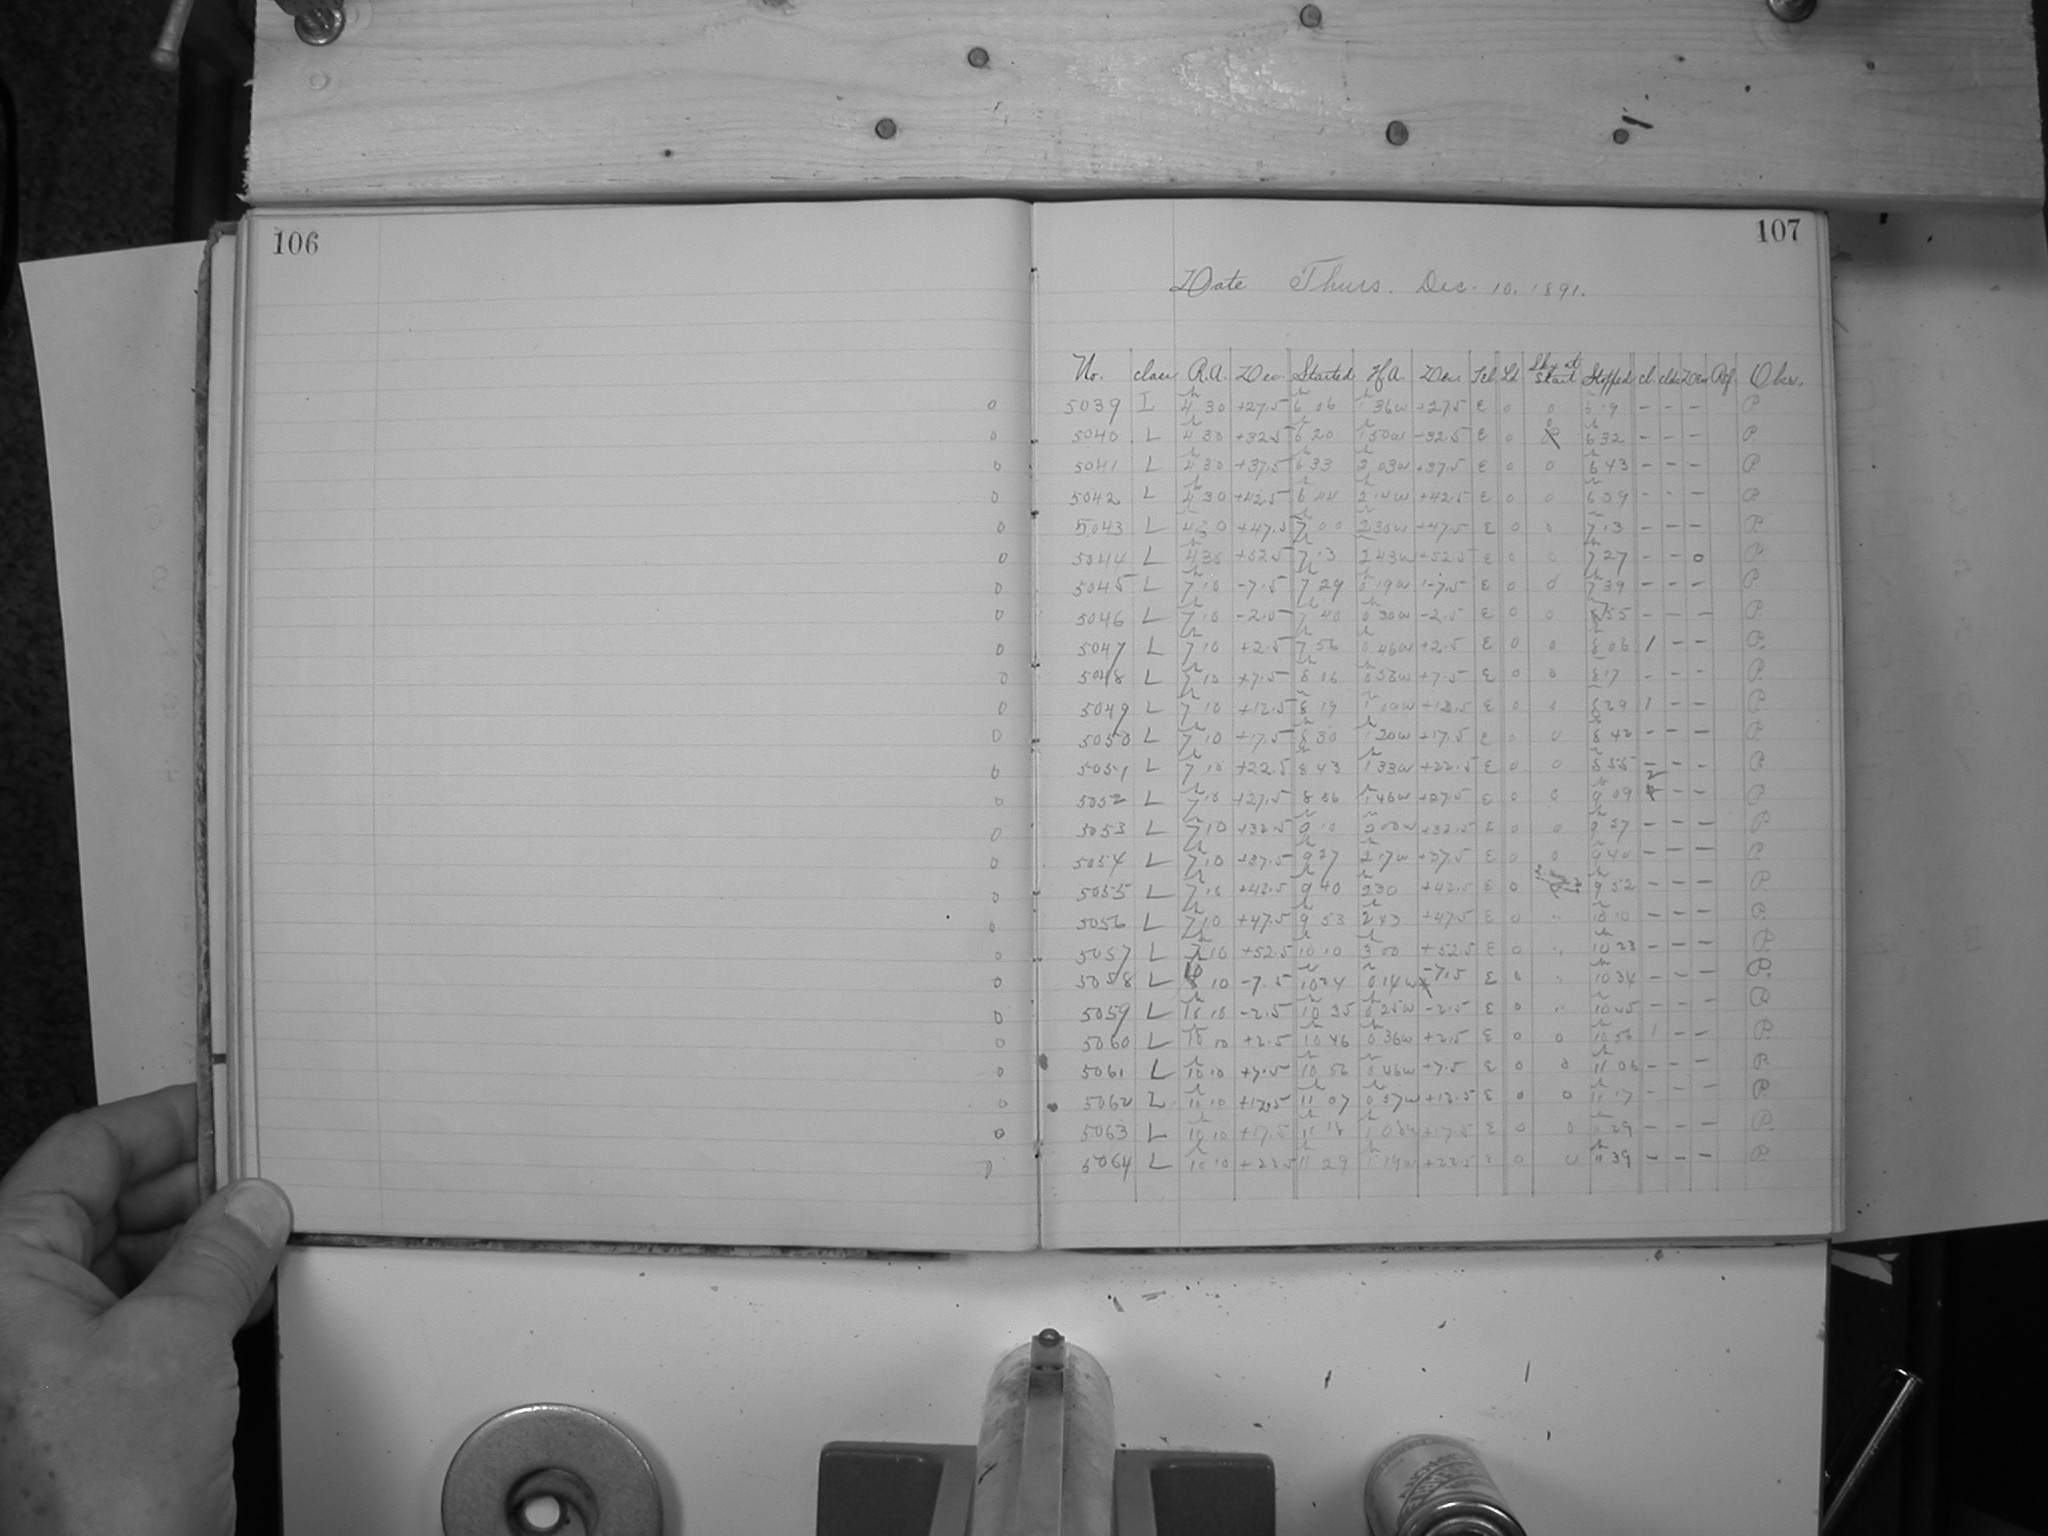 106
107
Date Thurs. Dec. 10. 1891.
No. class R.A. Dec. Started H.A. Dec. Tel Ld Sky at Start Stopped cl. clds Dew Ref. Obsr.
0 5039 L 4 30 +27.5 6 06 1 36w +27.5 E 0 0 6 19 - - - P.
0 5040 L 4 30 +32.5 6 20 1 50w +32.5 E 0 0 6 32 - - - P.
0 5041 L 4 30 +37.5 6 33 2 03w +37.5 E 0 0 6 43 - - - P.
0 5042 L 4 30 +42.5 6 44 2 14w +42.5 E 0 0 6 59 - - - P.
0 5043 L 4 30 +47.5 7 00 2 30w +47.5 E 0 0 7 13 - - - P.
0 5044 L 4 30 +52.5 7 13 2 43w +52.5 E 0 0 7 27 - - 0 P.
0 5045 L 7 10 -7.5 7 29 0 19w -7.5 E 0 0 7 39 - - - P.
0 5046 L 7 10 -2.5 7 40 0 30w -2.5 E 0 0 7 55 - - - P.
0 5047 L 7 10 +2.5 7 56 0 46w +2.5 E 0 0 8 06 1 - - P.
0 5048 L 7 10 +7.5 8 06 0 56w +7.5 E 0 0 8 17 - - - P.
0 5049 L 7 10 +12.5 8 19 1 09w +12.5 E 0 0 8 29 1 - - P.
0 5050 L 7 10 +17.5 8 30 1 20w +17.5 E 0 0 8 42 - - - P.
0 5051 L 7 10 +22.5 8 43 1 33w +22.5 E 0 0 8 55 - - - P.
0 5052 L 7 10 +27.5 8 56 1 46w +27.5 E 0 0 9 09 2 - - P.
0 5053 L 7 10 +32.5 9 10 2 00w +32.5 E 0 0 9 27 - - - P.
0 5054 L 7 10 +37.5 9 27 2 17w +37.5 E 0 0 9 40 - - - P.
0 5055 L 7 10 +42.5 9 40 2 30 +42.5 E 0 9 52 - - - P.
0 5056 L 7 10 +47.5 9 53 2 43 +47.5 E 0 " 10 10 - - - P.
0 5057 L 7 10 +52.5 10 10 3 00 +52.5 E 0 " 10 23 - - - P.
0 5058 L 10 10 -7.5 10 24 0 14w -7.5 E 0 " 10 34 - - - P.
0 5059 L 10 10 -2.5 10 35 0 25w -2.5 E 0 " 10 45 - - - P.
0 5060 L 10 10 +2.5 10 46 0 36w +2.5 E 0 0 10 56 1 - - P.
0 5061 L 10 10 +7.5 10 56 0 46w +7.5 E 0 0 11 06 - - - P.
0 5062 L 10 10 +12.5 11 07 0 57w +12.5 E 0 0 11 17 - - - P.
0 5063 L 10 10 +17.5 11 18 1 08w +17.5 E 0 0 11 29 - - - P.
0 5064 L 10 10 +22.5 11 29 1 19w +22.5 E 0 0 11 39 - - - P.